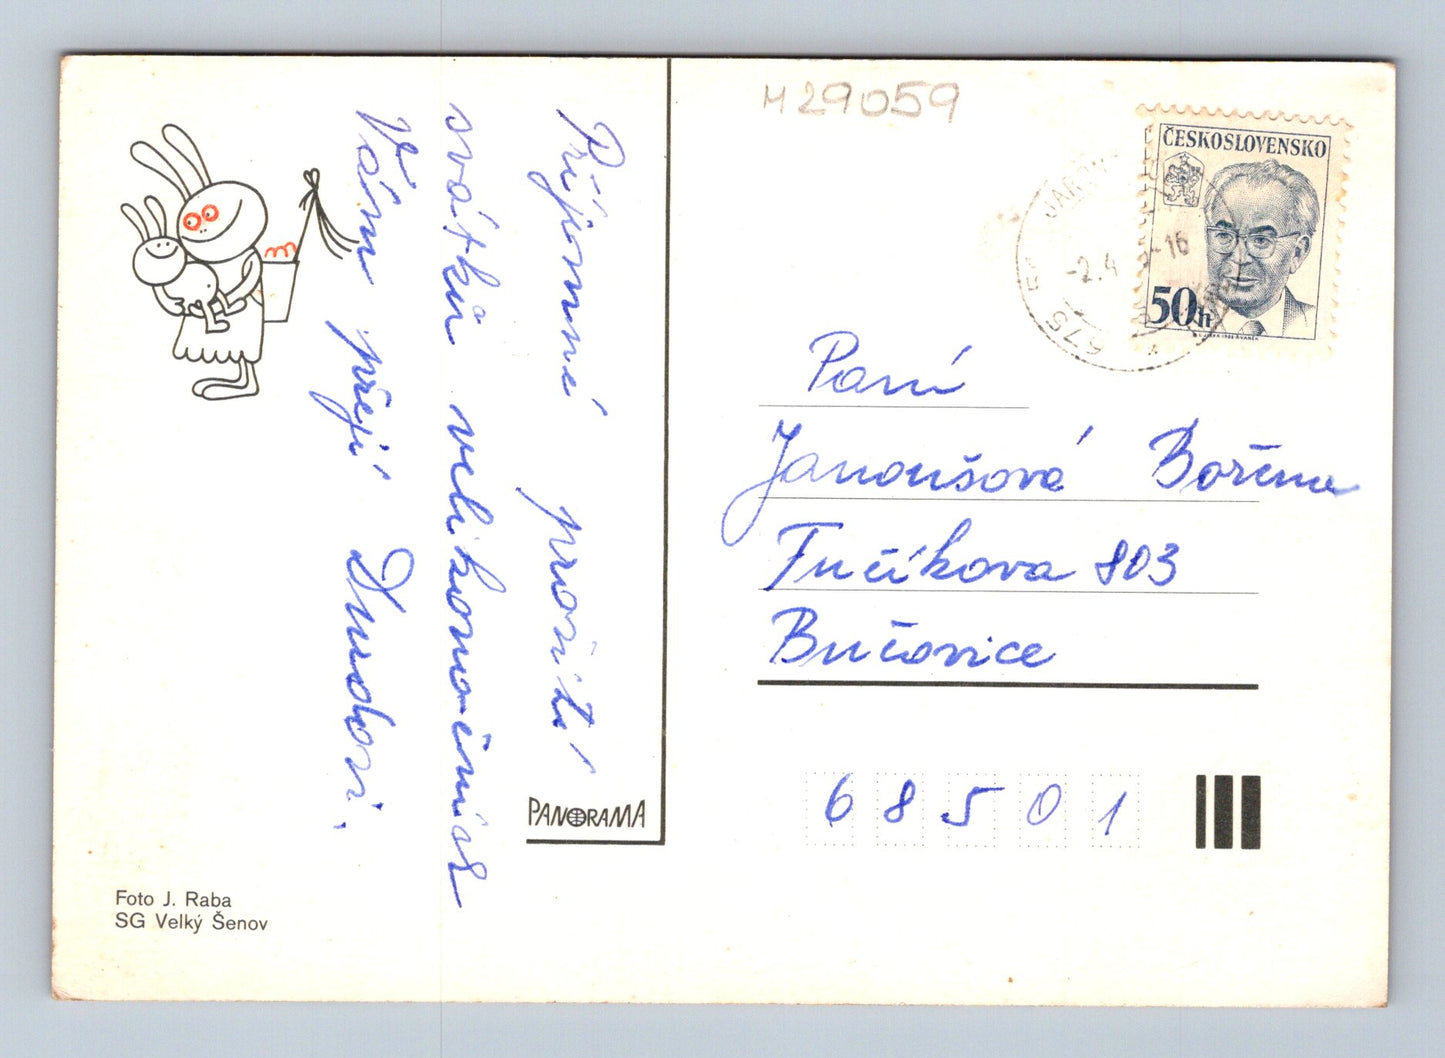 Příjemné prožití
svátků velikonočních
Vám přejí
M29059
ČESKOSLOVENSKO
50h
675
JAROM
-2.4
-16
Paní
Janoušová Božena
Fučíkova 803
Bučovice
68501
PANORAMA
Foto J. Raba
SG Velký Šenov